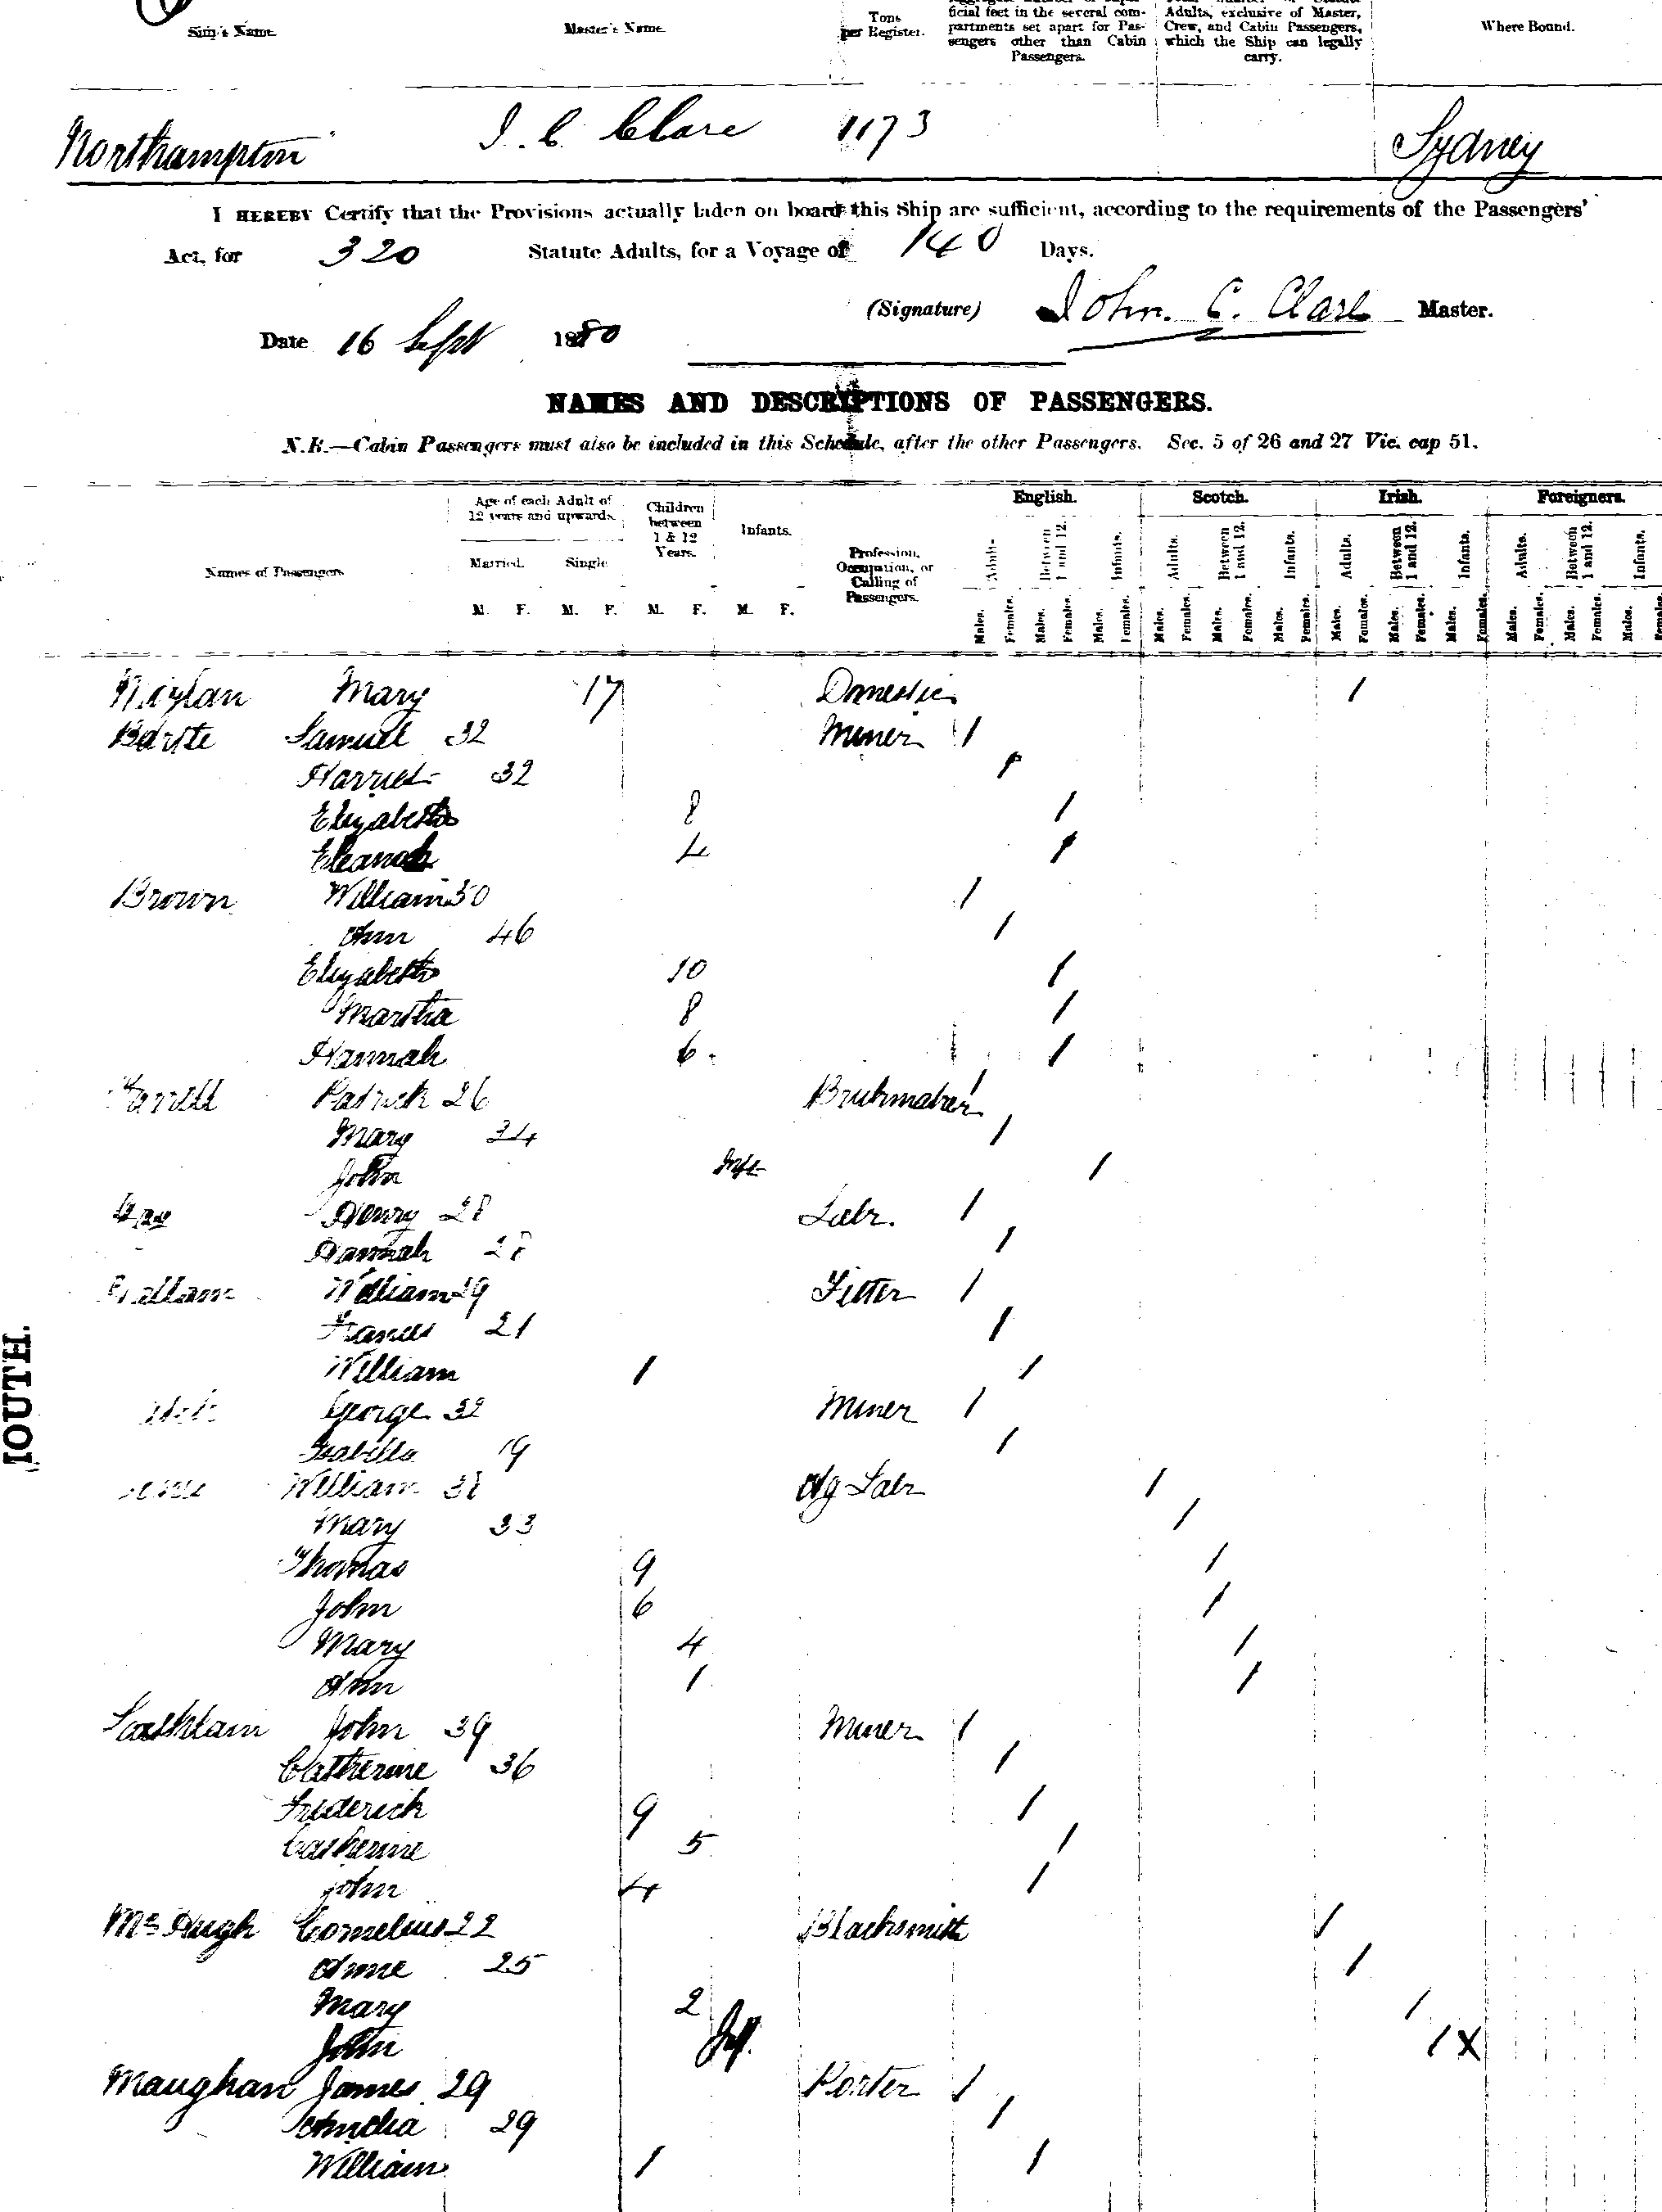 Ship's Name Master's Name Tons per Register. ficial feet in the several compartments set apart for Passengers other than Cabin Passengers. Adults, exclusive of Master, Crew, and Cabin Passengers, which the Ship can legally carry. Where Bound.
Northampton J. C. Clare 1173 Sydney
I HEREBY Certify that the Provisions actually laden on board this Ship are sufficient, according to the requirements of the Passengers'
Act, for 320 Statute Adults, for a Voyage of 140 Days.
(Signature) John. C. Clare Master.
Date 16 Sept 1880
NAMES AND DESCRIPTIONS OF PASSENGERS.
N.B.—Cabin Passengers must also be included in this Schedule, after the other Passengers. Sec. 5 of 26 and 27 Vic. cap 51.
Names of Passengers Age of each Adult of 12 years and upwards. Children between 1 & 12 Years. Infants. Profession, Occupation, or Calling of Passengers. English. Scotch. Irish. Foreigners.
Married. Single
Adults. Between 1 and 12. Infants. Adults. Between 1 and 12. Infants. Adults. Between 1 and 12. Infants. Adults. Between 1 and 12. Infants.
M. F. M. F. M. F. M. F. Males. Females. Males. Females. Males. Females. Males. Females. Males. Females. Males. Females. Males. Females. Males. Females. Males. Females. Males. Females. Males. Females. Males. Females.
Mary 17 Domestic 1
Samuel 32 Miner 1
Harriet 32 1
Elizabeth 8 1
Eleanor 4 1
Brown William 50 1
Ann 46 1
Elizabeth 10 1
Martha 8 1
Hannah 6 1
Patrick 26 Brickmaker 1
Mary 34 1
John Inft 1
Henry 28 Labr. 1
Hannah 28 1
William 29 Fitter 1
Frances 21 1
William 1 1
George 32 Miner 1
Isabella 19 1
William 38 Ag Labr 1
Mary 33 1
Thomas 9 1
John 6 1
Mary 4 1
Ann 1 1
John 39 Miner 1
Catherine 36 1
Frederick 9 1
Catherine 5 1
John 4 1
McHugh Cornelius 22 Blacksmith 1
Anne 25 1
Mary 2 1
John Inf. 1 X
Maughan James 29 Porter 1
29 1
William 1 1
IOUTH.